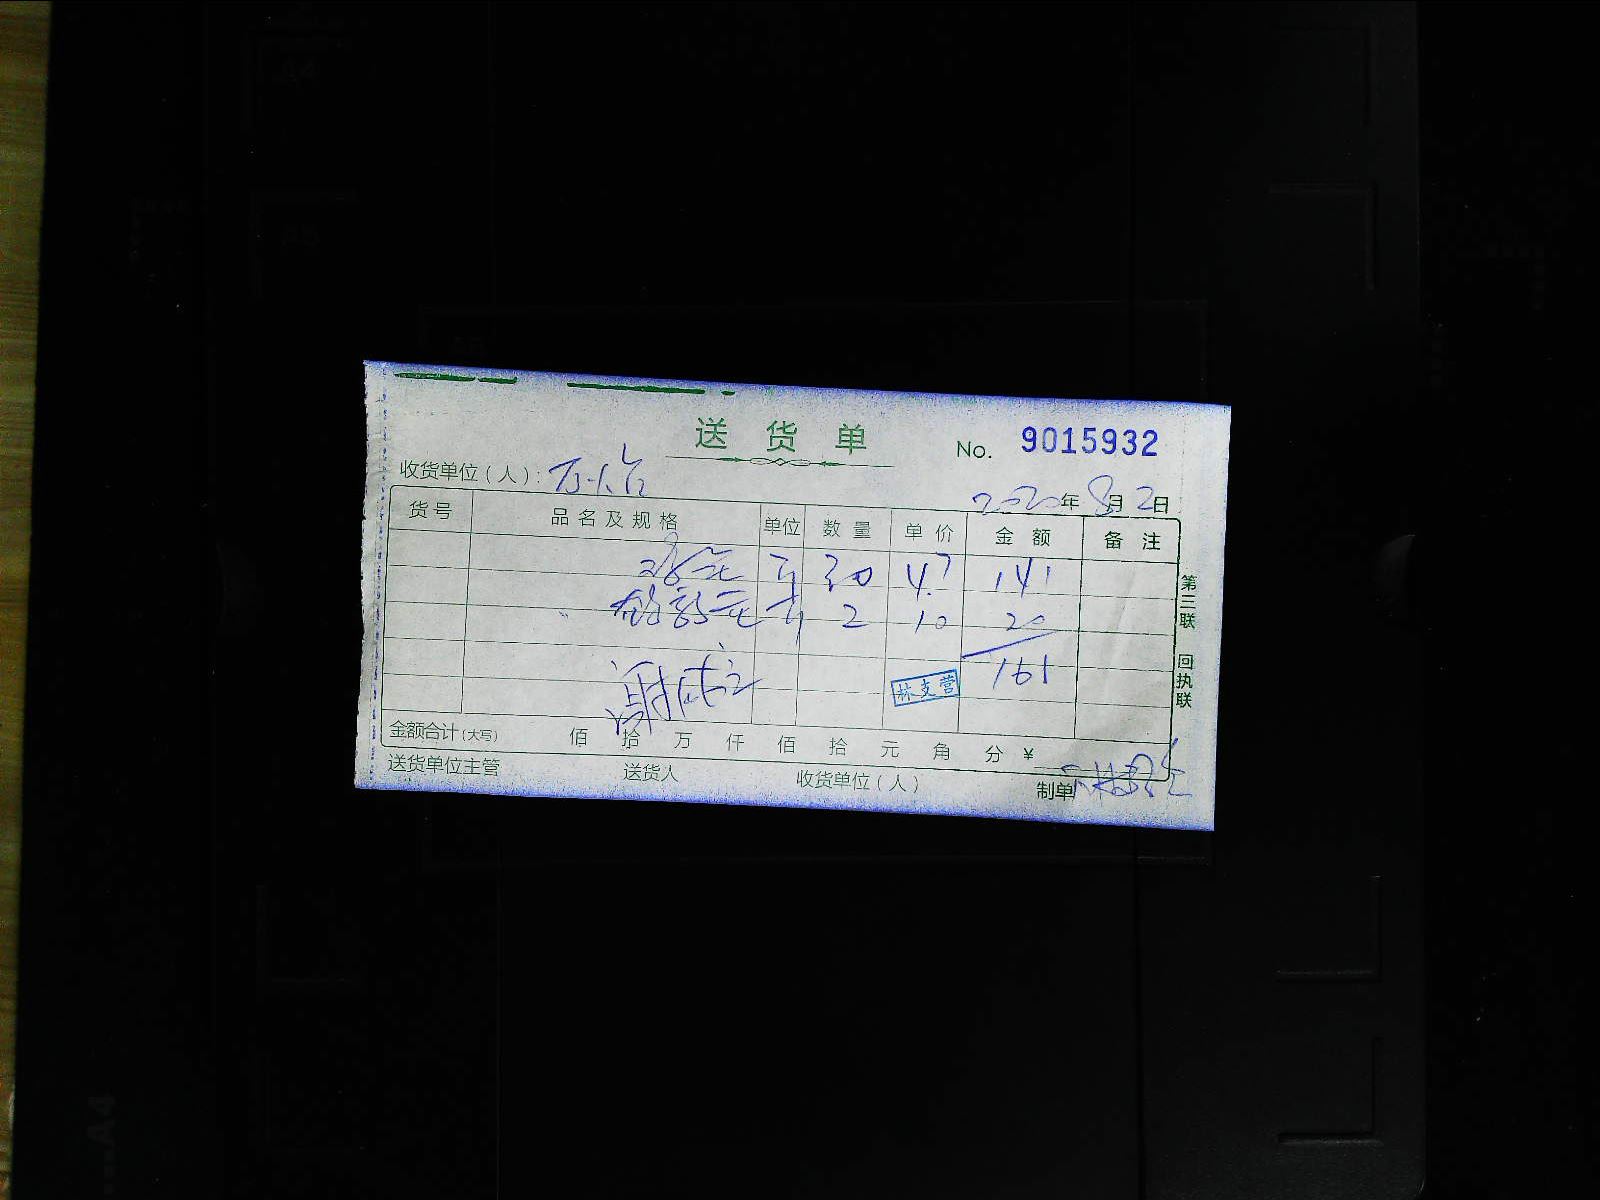 送货单
No. 9015932
收货单位(人):
2020年8月2日
货号 品名及规格 单位 数量 单价 金额 备注
鸡蛋 斤 30 4.7 141
斤 2 10 20
161
谢成立
林支营
金额合计(大写) 佰 拾 万 仟 佰 拾 元 角 分 ¥
送货单位主管 送货人 收货单位(人) 制单
第三联 回执联
A4